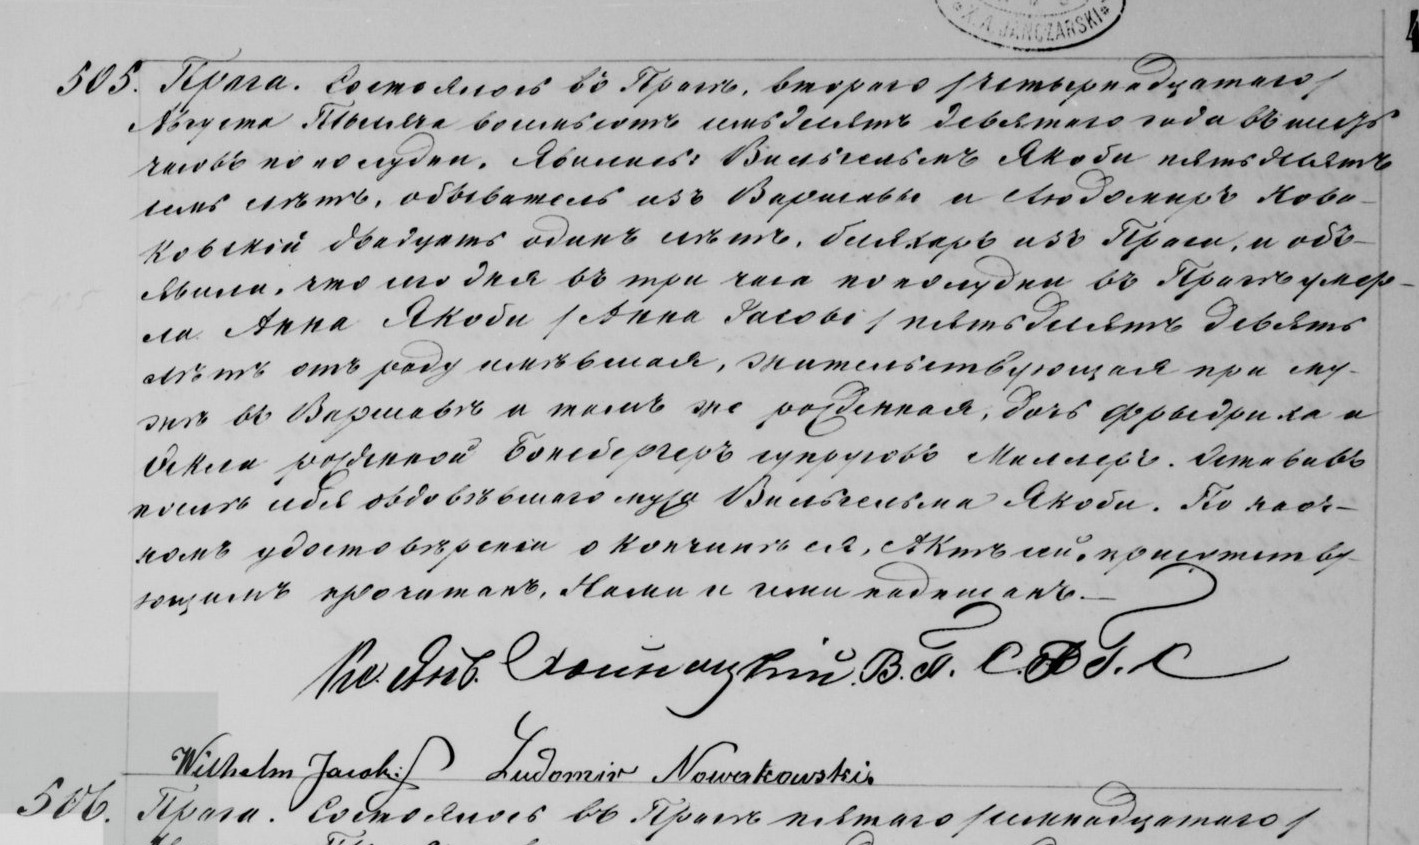 K. A. JANCZARSKI
4
505. Прага. Состоялось въ Прагѣ, втораго /четырнадцатаго/
Августа Тысяча восемьсотъ семьдесятъ девятаго года въ шесть
часовъ по полудни. Явились: Вильгельмъ Якоби пятьдесятъ
семь лѣтъ, обыватель изъ Варшавы и Людомиръ Нова-
ковскій двадцать одинъ лѣтъ, бляхаръ изъ Праги, и объ-
явили, что сего дня въ три часа пополудни въ Прагѣ умер-
ла Анна Якоби /Anna Jacobi/ пятьдесятъ девять
лѣтъ отъ роду имѣвшая, жительствующая при му-
жѣ въ Варшавѣ и тамъ же рожденная, дочь Фрыдриха и
Фекли рожденной Бонебергеръ супруговъ Миллеръ. Оставивъ
послѣ себя овдовѣвшаго мужа Вильгельма Якоби. По наоч-
номъ удостовѣреніи о кончинѣ ея, Актъ сей, присутству-
ющимъ прочитанъ, Нами и ими подписанъ.—
Кс. Янв. В. П. С. А. Г. С
Wilhelm Jacobi Ludomir Nowakowski
506. Прага. Состоялось въ Прагѣ пятаго /семнадцатаго/